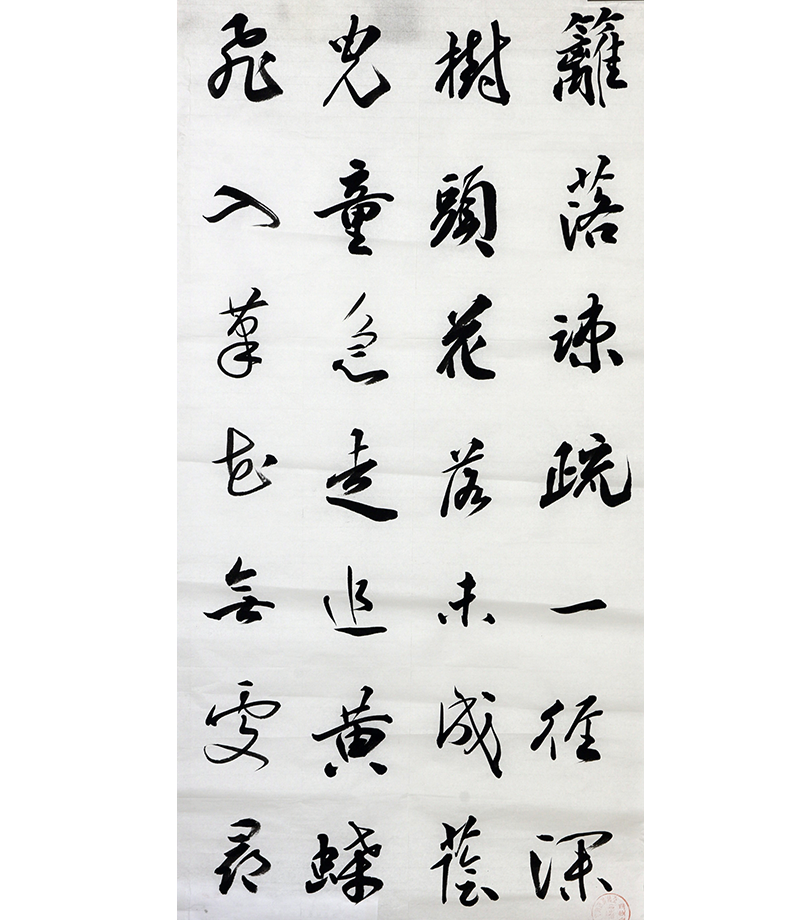 籬落疎疏一徑深
樹頭花落未成蔭
兒童急走追黄蝶
飛入菜花無處尋